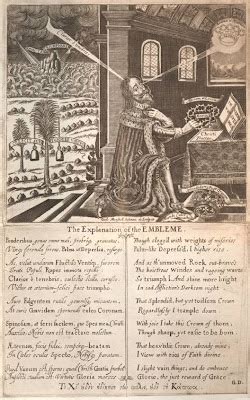 The Explanation of the EMBLEME
Ponderibus genus omne mali, probriq; gravatus,
Vixq; ferenda ferens, Palma ut Depressa, resurgo.
Ac, velut undarum Fluctus Ventiq; furorem
Irati Populi Rupes immota repello.
Clarior è tenebris, cœlestis Stella, corusco.
Victor et æternum felici pace triumpho.
Auro Fulgentem rutilo gemmisq; micantem,
At curis Gravidam spernendo calco Coronam.
Spinosam, at ferri facilem, quo Spes mea, Christi
Auxilio, Nobis non est tractare molestum.
Æternam, fixis fidei, semperq; beatam
In Cœlos oculis Specto, Nobisq; paratam.
Quod Vanum est, sperno; quod Christi Gratia præbet
Amplecti studium est: Virtutis Gloria merces.
Though clogg'd with weights of miseries
Palm-like Depress'd, I higher rise.
And as th'unmoved Rock out-braves
The boistrous Windes and rageing waves:
So triumph I. And shine more bright
In sad Affliction's Darksom night.
That Splendid, but yet toilsom Crown
Regardlessly I trample down.
With joie I take this Crown of thorn,
Though sharp, yet easie to be born.
That heavenlie Crown, already mine,
I View with eies of Faith divine.
I slight vain things; and do embrace
Glorie, the just reward of Grace.
G.D.